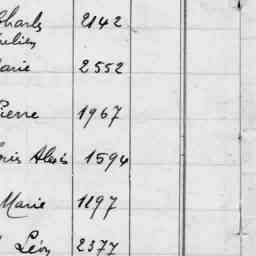 Charles 2142
Julien
Marie 2552
Pierre 1967
Louis Alexis 1594
Marie 1897
Léon 2377